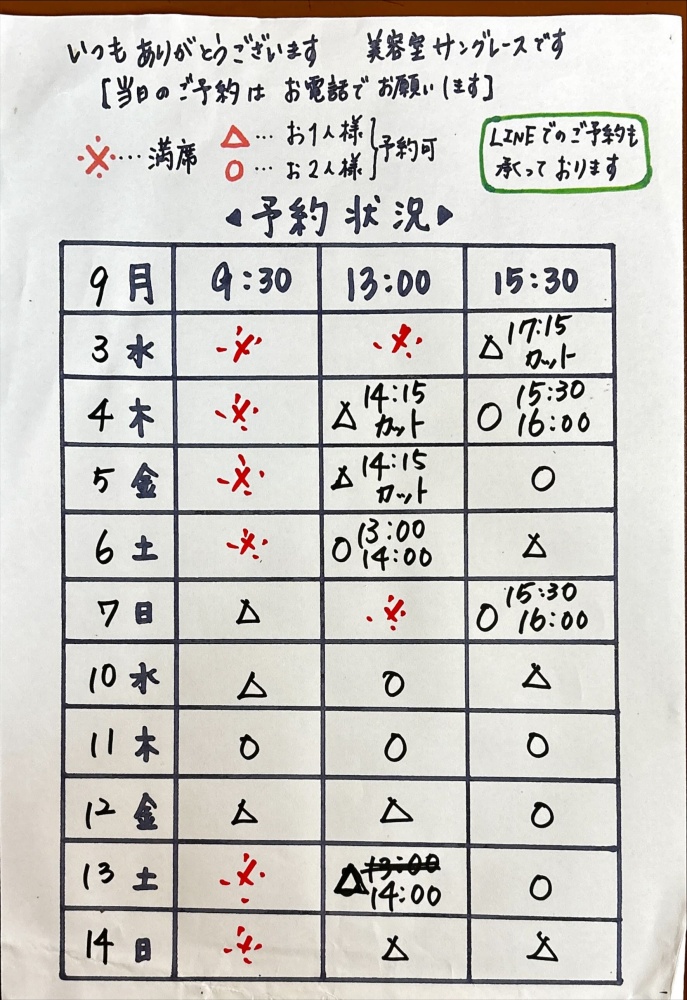 いつもありがとうございます 美容室サングレースです
[当日のご予約はお電話でお願いします]
※…満席 △…お1人様 ○…お2人様 予約可
LINEでのご予約も
承っております
◀予約状況▶
9月 9:30 13:00 15:30
3 水 ※ ※ △17:15 カット
4 木 ※ △14:15 カット ○15:30 16:00
5 金 ※ △14:15 カット ○
6 土 ※ ○13:00 14:00 △
7 日 △ ※ ○15:30 16:00
10 水 △ ○ △
11 木 ○ ○ ○
12 金 △ △ ○
13 土 ※ △13:00 14:00 ○
14 日 ※ △ △